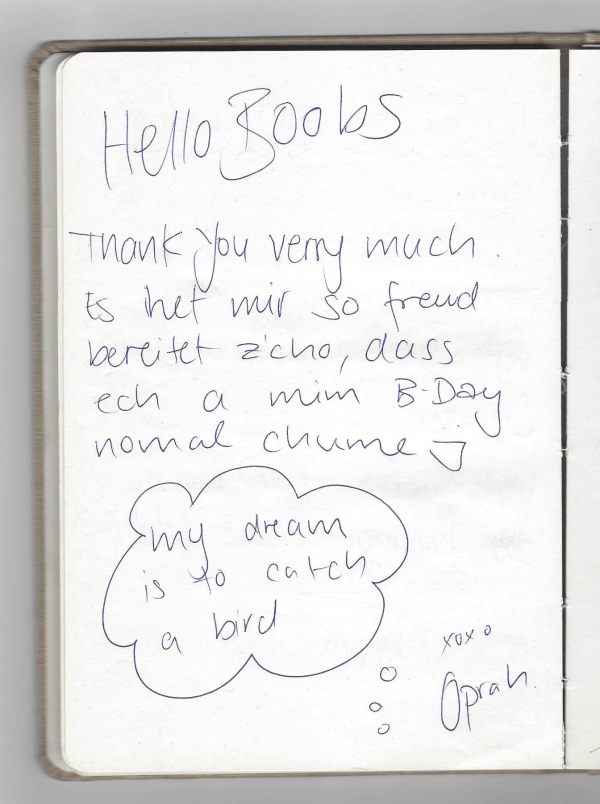 Hello Boobs
Thank you verry much.
Es het mir so freud
bereitet z'cho, dass
ech a mim B-Day
nomal chume :)
my dream
is to catch
a bird
xoxo
Oprah.